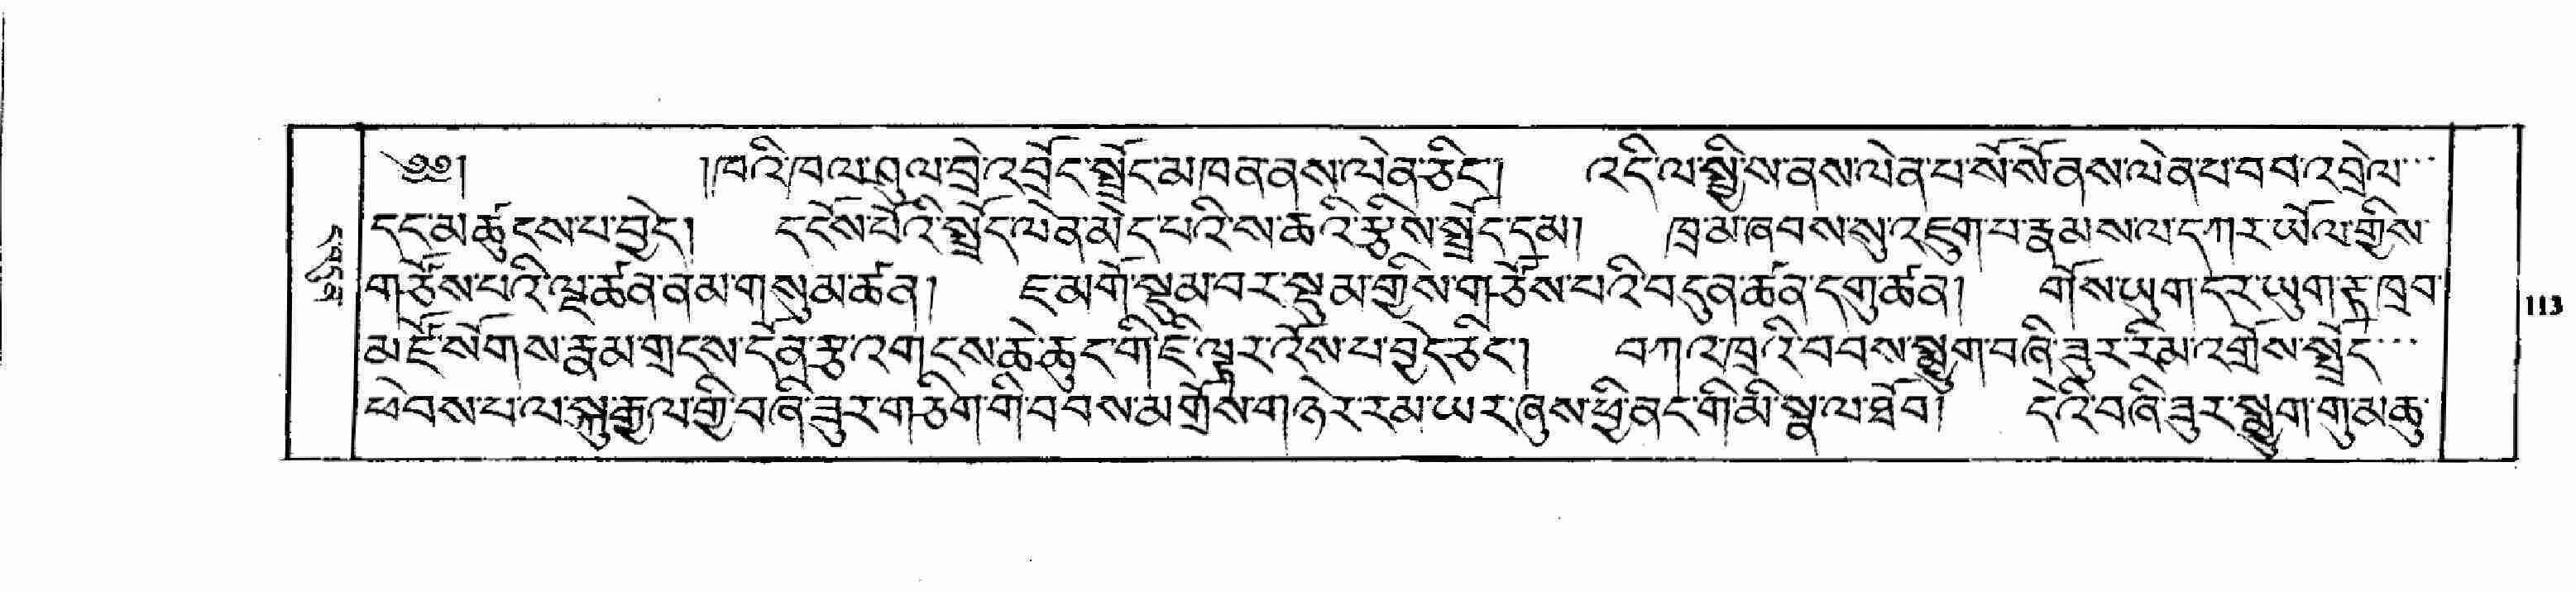 ༄༅། །ཁའི་ཁལ་བུལ་བྲེ་འབྲོང་སྤྲོད་མཁན་ནས་ལེན་ཅིང་། འདི་ལ་སྤྱིས་ནས་ལེན་པ་སོ་སོ་ནས་ལེན་པ་བབ་འབྲེལ་
དང་མཚུངས་པ་བྱེད། དངོས་པོའི་སྤྲོད་ལེན་མེད་པའི་ས་ཆའི་རྩིས་སྤྲོད་དམ། ཁྲ་མ་ཞབས་སུ་འཇུག་པ་རྣམས་ལ་དཀར་ཡོལ་གྱིས་
གཙོས་པའི་ལྔ་ཚན་ནམ་གསུམ་ཚན། ཇ་མགོ་སྡུམ་བར་སྡུམ་གྱིས་གཙོས་པའི་བདུན་ཚན་དགུ་ཚན། གོས་ཡུག་དར་ཡུག་རྟ་ཁྲབ་
མཛོ་སོགས་རྣམ་གྲངས་དོན་རྩ་འགངས་ཆེ་ཆུང་གི་ཇི་ལྟར་འོས་པ་བྱེད་ཅིང་། བཀའ་ཁྲའི་བབས་སྨྱུག་བཞི་ཟུར་རིམ་འགྲོས་སྤྲོད་
ཕེབས་པ་ལ་སྐུ་རྒྱལ་གྱི་བཞི་ཟུར་གཅིག་གི་བབས་མགྲོས་གཉེར་རམ་ཡར་ཞུས་ཕྱི་ནང་གི་མི་སྣ་ལ་ཐོབ། དེའི་བཞི་ཟུར་སྨྱུག་གུ་མཆུ་
113